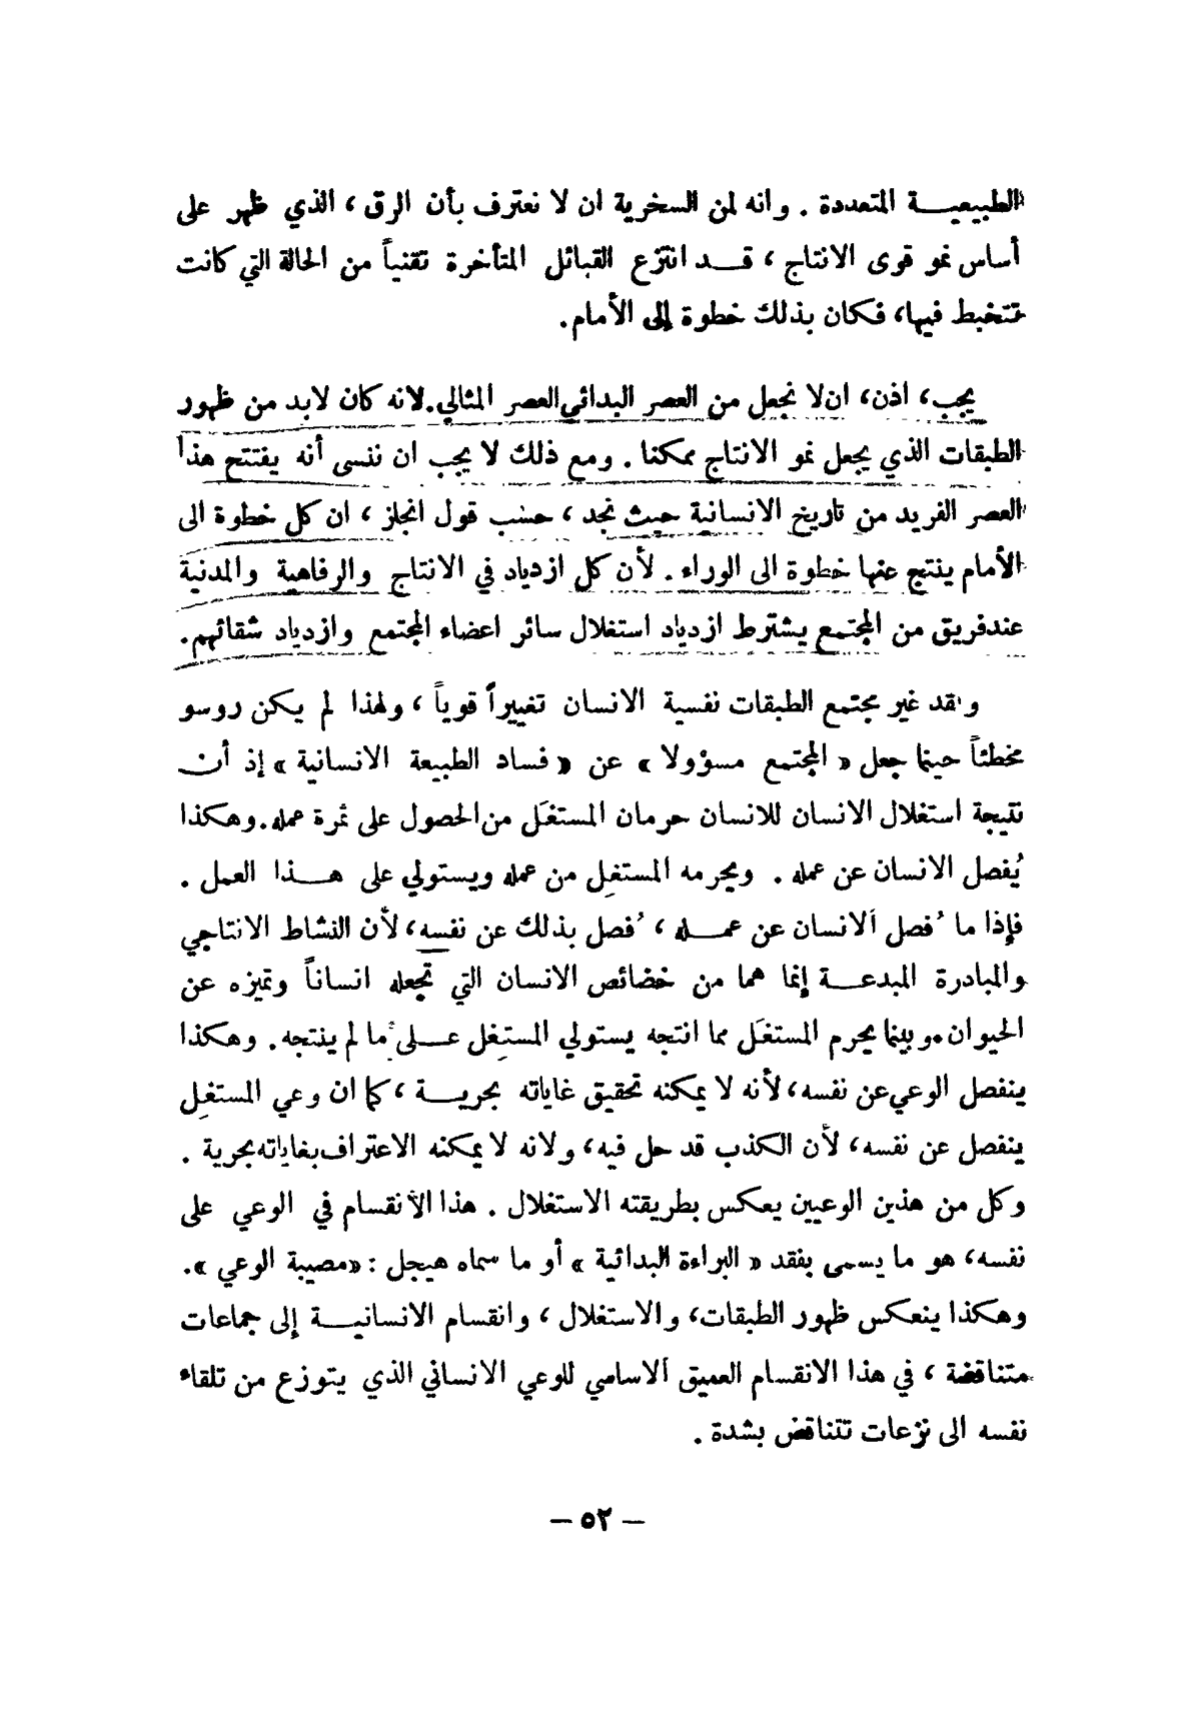 الطبيعيـــة المتعددة . وانه لمن السخرية ان لا نعترف بأن الرق ، الذي ظهر على
أساس نمو قوى الانتاج ، قـــد انتزع القبائل المتأخرة تقنياً من الحالة التي كانت
تتخبط فيها، فكان بذلك خطوة إلى الأمام.
يجب، اذن، ان لا نجعل من العصر البدائي العصر المثالي. لانه كان لابد من ظهور
الطبقات الذي يجعل نمو الانتاج ممكنا . ومع ذلك لا يجب ان ننسى أنه يفتتح هذا
العصر الفريد من تاريخ الانسانية حيث نجد ، حسب قول انجلز ، ان كل خطوة الى
الأمام ينتج عنها خطوة الى الوراء . لأن كل ازدياد في الانتاج والرفاهية والمدنية
عند فريق من المجتمع يشترط ازدياد استغلال سائر اعضاء المجتمع وازدياد شقائهم.
ولقد غير مجتمع الطبقات نفسية الانسان تغييراً قوياً ، ولهذا لم يكن روسو
مخطئاً حينما جعل « المجتمع مسؤولا » عن « فساد الطبيعة الانسانية » إذ أن
نتيجة استغلال الانسان للانسان حرمان المستغَل من الحصول على ثمرة عمله. وهكذا
يُفصل الانسان عن عمله . ويحرمه المستغِل من عمله ويستولي على هـــذا العمل .
فإذا ما فُصل الانسان عن عمـــله ، فُصل بذلك عن نفسه، لأن النشاط الانتاجي
والمبادرة المبدعـــة إنما هما من خصائص الانسان التي تجعله انساناً وتميزه عن
الحيوان. وبينما يحرم المستغَل مما انتجه يستولي المستغِل عـــلى ما لم ينتجه. وهكذا
ينفصل الوعي عن نفسه، لأنه لا يمكنه تحقيق غاياته بحريـــة ، كما ان وعي المستغِل
ينفصل عن نفسه، لأن الكذب قد حل فيه، ولانه لا يمكنه الاعتراف بغاياته بحرية .
وكل من هذين الوعيين يعكس بطريقته الاستغلال . هذا الأنقسام في الوعي على
نفسه، هو ما يسمى بفقد « البراءة البدائية » أو ما سماه هيجل : «مصيبة الوعي ».
وهكذا ينعكس ظهور الطبقات، والاستغلال ، وانقسام الانسانيـــة إلى جماعات
متناقضة ، في هذا الانقسام العميق الاساسي للوعي الانساني الذي يتوزع من تلقاء
نفسه الى نزعات تتناقض بشدة .
– ٥٢ –